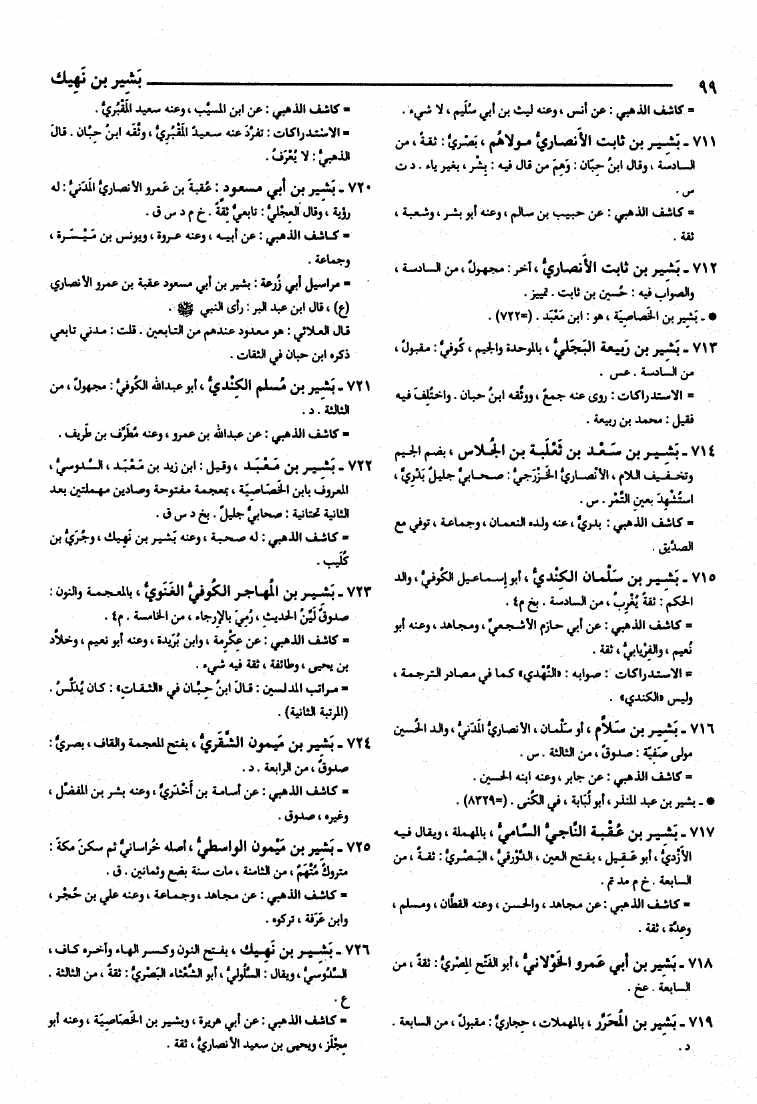 ٩٩ بَشير بن نَهيك
= كاشف الذهبي : عن أنس ، وعنه ليث بن أبي سُلَيم ، لا شيء .
٧١١ ـ بَشير بن ثابت الأنصاريُّ مولاهُم ، بَصْرِيٌّ : ثقةٌ ، من
السادسة ، وقال ابنُ حِبّان : وَهِمَ من قال فيه : بِشْر ، بغير ياء . د ت
س .
= كاشف الذهبي : عن حبيب بن سالم ، وعنه أبو بشر ، وشعبة ،
ثقة .
٧١٢ ـ بَشير بن ثابت الأنصاريُّ ، آخر : مجهولٌ ، من السادسة ،
والصواب فيه : حُسين بن ثابت . تمييز .
● ـ بَشير بن الخَصاصِيّة ، هو : ابن مَعْبَد . (=٧٢٢) .
٧١٣ ـ بَشير بن رَبيعة البَجَليُّ ، بالموحدة والجيم ، كُوفيٌّ : مقبولٌ ،
من السادسة . عس .
= الاستدراكات : روى عنه جمعٌ ، ووثَّقه ابنُ حبان . واختُلِفَ فيه
فقيل : محمد بن ربيعة .
٧١٤ ـ بَشير بن سَعْد بن ثَعْلَبة بن الجُلاس ، بضم الجيم
وتخفيف اللام ، الأنصاريُّ الخَزْرَجيُّ : صحابيٌّ جليلٌ بَدْرِيٌّ ،
استُشْهِدَ بعينِ التَّمْر . س .
= كاشف الذهبي : بدريٌّ ، عنه ولده النعمان ، وجماعة ، توفي مع
الصدّيق .
٧١٥ ـ بَشير بن سَلْمان الكِنديُّ ، أبو إسماعيل الكوفيُّ ، والد
الحكم : ثقةٌ يُغْرِبُ ، من السادسة . بخ م٤ .
= كاشف الذهبي : عن أبي حازم الأشجعيِّ ، ومجاهد ، وعنه أبو
نُعيم ، والفِرْيابيُّ ، ثقة .
= الاستدراكات : صوابه : «النَّهْدي» كما في مصادر الترجمة ،
وليس «الكندي» .
٧١٦ ـ بَشير بن سَلاَم ، أو سَلْمان ، الأنصاريُّ المدَنيُّ ، والد الحُسين
مولى صَفيَّة : صدوقٌ ، من الثالثة . س .
= كاشف الذهبي : عن جابر ، وعنه ابنه الحسين .
● ـ بشير بن عبد المنذر ، أبو لُبَابة ، في الكُنى . (=٨٣٢٩) .
٧١٧ ـ بَشير بن عُقْبة النّاجيُّ السّاميُّ ، بالمهملة ، ويقال فيه
الأزْديُّ ، أبو عَقيل ، بفتح العين ، الدَّوْرَقيُّ ، البَصْريُّ : ثقةٌ ، من
السابعة . خ م مد تم .
= كاشف الذهبي : عن مجاهد ، والحسن ، وعنه القطّان ، ومسلم ،
وعدّة ، ثقة .
٧١٨ ـ بَشير بن أبي عَمرو الخَوْلانيُّ ، أبو الفَتْح المِصْريُّ : ثقةٌ ، من
السابعة . عخ .
٧١٩ ـ بَشير بن المُحَرَّر ، بالمهملات ، حِجازيٌّ : مقبولٌ ، من السابعة .
د .
= كاشف الذهبي : عن ابن المسيَّب ، وعنه سعيد المَقْبُرِيُّ .
= الاستدراكات : تفرَّدَ عنه سعيدٌ المَقْبُرِي ، وثَّقه ابنُ حِبّان . قالَ
الذهبيُّ : لا يُعْرَفُ .
٧٢٠ ـ بَشير بن أبي مسعود : عُقبةَ بن عَمرو الأنصاريُّ المَدَنيُّ : له
رؤية ، وقال العِجْليُّ : تابعيٌّ ثِقَةٌ . خ م د س ق .
= كاشف الذهبي : عن أبيه ، وعنه عروة ، ويونس بن مَيْسَرة ،
وجماعة .
= مراسيل أبي زُرعة : بشير بن أبي مسعود عقبة بن عمرو الأنصاري
(ع) ، قال ابن عبد البر : رأى النبي ﷺ .
قال العلائي : هو معدود عندهم من التابعين . قلت : مدني تابعي
ذكره ابن حبان في الثقات .
٧٢١ ـ بَشير بن مُسلم الكِنْديُّ ، أبو عبدالله الكوفيُّ : مجهولٌ ، من
الثالثة . د .
= كاشف الذهبي : عن عبدالله بن عمرو ، وعنه مُطَرِّف بن طَريف .
٧٢٢ ـ بَشير بن مَعْبَد ، وقيل : ابن زيد بن مَعْبَد ، السَّدوسيُّ ،
المعروف بابن الخَصَاصِيَة ، بمعجمة مفتوحة وصادين مهملتين بعد
الثانية تحتانية : صحابيٌّ جليلٌ . بخ د س ق .
= كاشف الذهبي : له صحبة ، وعنه بَشير بن نَهيك ، وجُرَيُّ بن
كُلَيب .
٧٢٣ ـ بَشير بن المُهاجر الكوفيُّ الغَنَويُّ ، بالمعجمة والنون :
صدوقٌ لَيِّنُ الحديث ، رُميَ بالإرجاء ، من الخامسة . م٤ .
= كاشف الذهبي : عن عِكرمة ، وابن بُرَيدة ، وعنه أبو نعيم ، وخلاّد
بن يحيى ، وطائفة ، ثقة فيه شيء .
= مراتب المدلسين : قالَ ابنُ حِبّان في «الثقات» : كان يُدَلِّسُ .
(المرتبة الثانية) .
٧٢٤ ـ بَشير بن مَيمون الشَّقَريُّ ، بفتح المعجمة والقاف ، بصريٌّ :
صدوقٌ ، من الرابعة . د .
= كاشف الذهبي : عن أسامة بن أَخْدَريٍّ ، وعنه بشر بن المفضَّل ،
وغيره ، صدوق .
٧٢٥ ـ بَشير بن مَيْمون الواسطيُّ ، أصله خُراسانيٌّ ثم سكنَ مكةَ :
متروكٌ مُتَّهَمٌ ، من الثامنة ، مات سنة بضع وثمانين . ق .
= كاشف الذهبي : عن مجاهد ، وجماعة ، وعنه علي بن حُجْر ،
وابن عَرَفة ، تركوه .
٧٢٦ ـ بَشير بن نَهيك ، بفتح النون وكسر الهاء وآخره كاف ،
السَّدُوسيُّ ، ويقال : السَّلُوليُّ ، أبو الشَّعْثاء البَصْريُّ : ثقةٌ ، من الثالثة .
ع .
= كاشف الذهبي : عن أبي هريرة ، وبشير بن الخَصَاصِيَّة ، وعنه أبو
مِجْلَز ، ويحيى بن سعيد الأنصاريُّ ، ثقة .